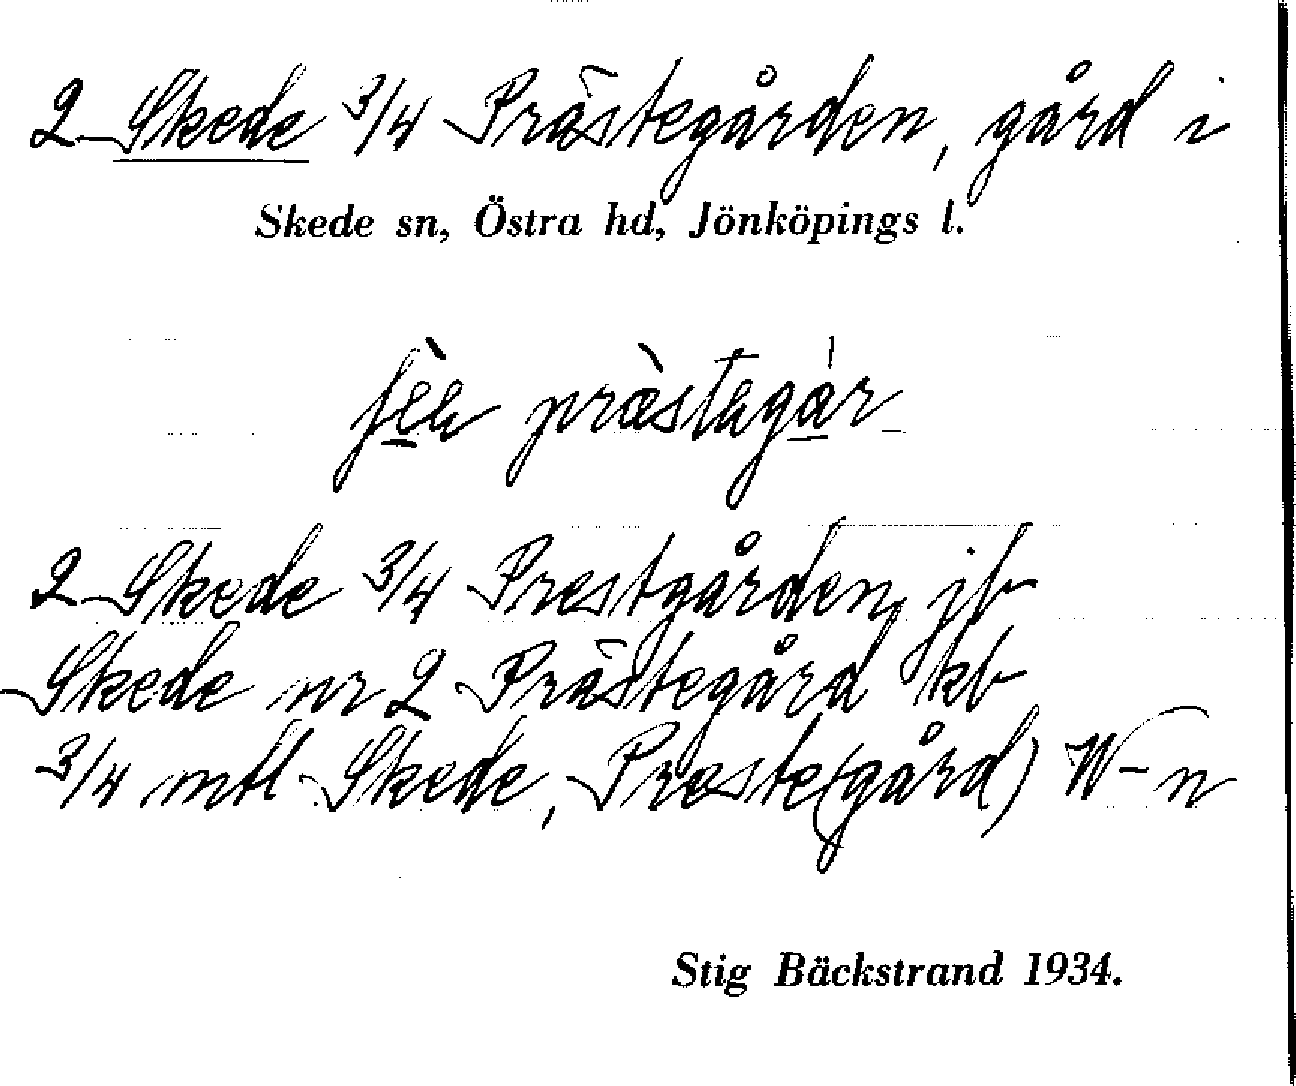 2 Skede 3/4 Prästegården, gård i
Skede sn, Östra hd, Jönköpings l.
prästegår
2 Skede 3/4 Prestgården, jb
Skede nr 2 Prästegård kb
3/4 mtl Skede, Preste(gård) W-n
Stig Bäckstrand 1934.